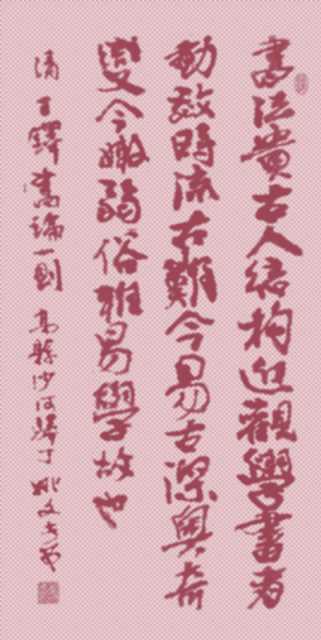 書法貴古人結構近觀學書者
動效時流古難今易古深奧奇
變今嫩弱俗稚易學故也
清王鐸書論一則 高縣沙河